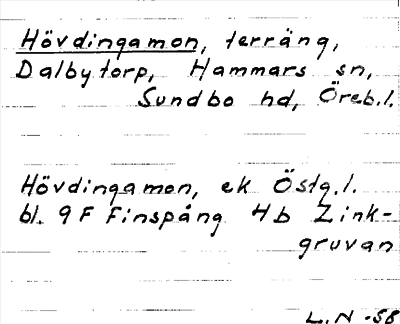 Hövdingamon, terräng,
Dalbytorp, Hammars sn,
Sundbo hd, Öreb.l.
Hövdingamon, ek Östg.l.
bl. 9F Finspång 4b Zink-
gruvan
L.N -58